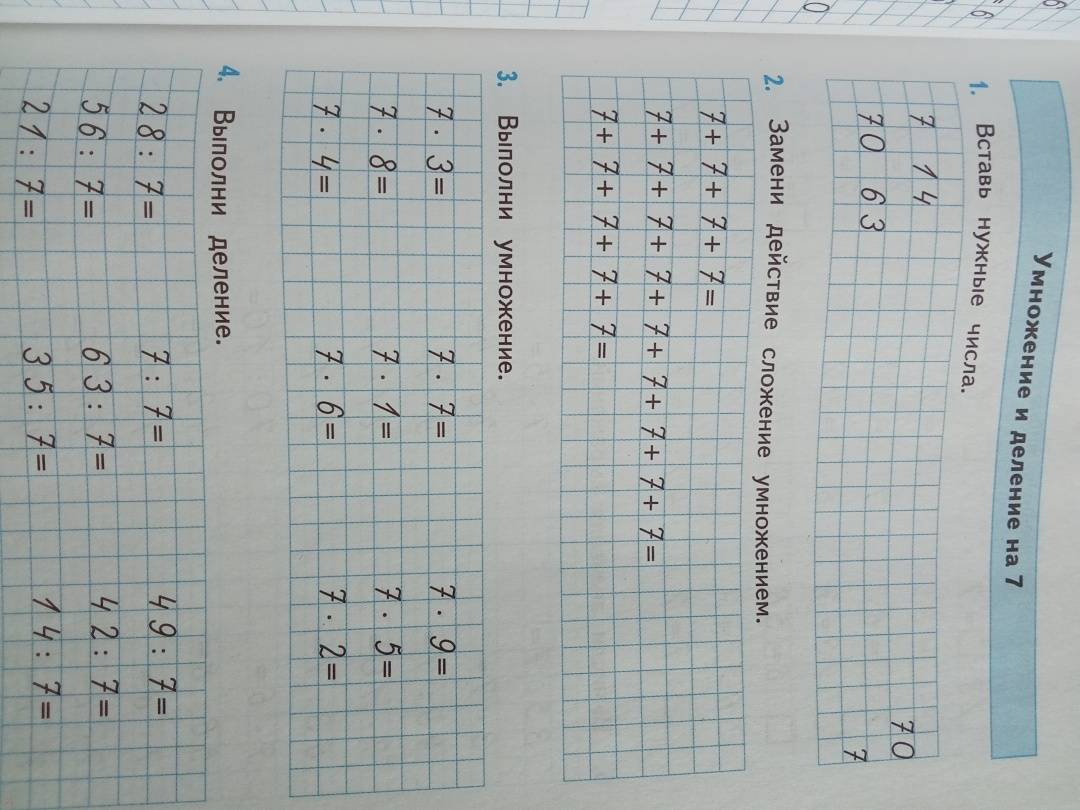 Умножение и деление на 7
1. Вставь нужные числа.
7 14 70
70 63 7
2. Замени действие сложение умножением.
7+ 7+ 7+ 7=
7+ 7+ 7+ 7+ 7+ 7+ 7+ 7+ 7=
7+ 7+ 7+ 7+ 7=
3. Выполни умножение.
7 · 3= 7 · 7= 7 · 9=
7 · 8= 7 · 1= 7 · 5=
7 · 4= 7 · 6= 7 · 2=
4. Выполни деление.
28: 7= 7: 7= 49: 7=
56: 7= 63: 7= 42: 7=
21: 7= 35: 7= 14: 7=